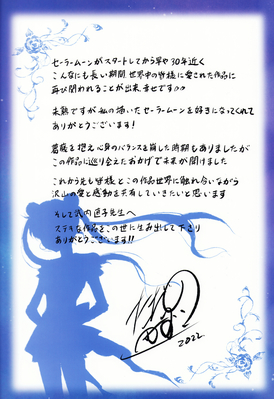 セーラームーンがスタートしてから早や30年近く
こんなにも長い期間 世界中の皆様に愛された作品に
再び関われることが出来、幸せです♡♡
未熟ですが私の描いたセーラームーンを好きになってくれて
ありがとうございます!
葛藤を抱え心身のバランスを崩した時期もありましたが
この作品に巡り会えたおかげで未来が開けました
これからも皆様とこの作品世界に触れ合いながら
沢山の愛と感動を共有していきたいと思います
そして武内直子先生へ
ステキな作品をこの世に生み出して下さり
ありがとうございます!!
2022